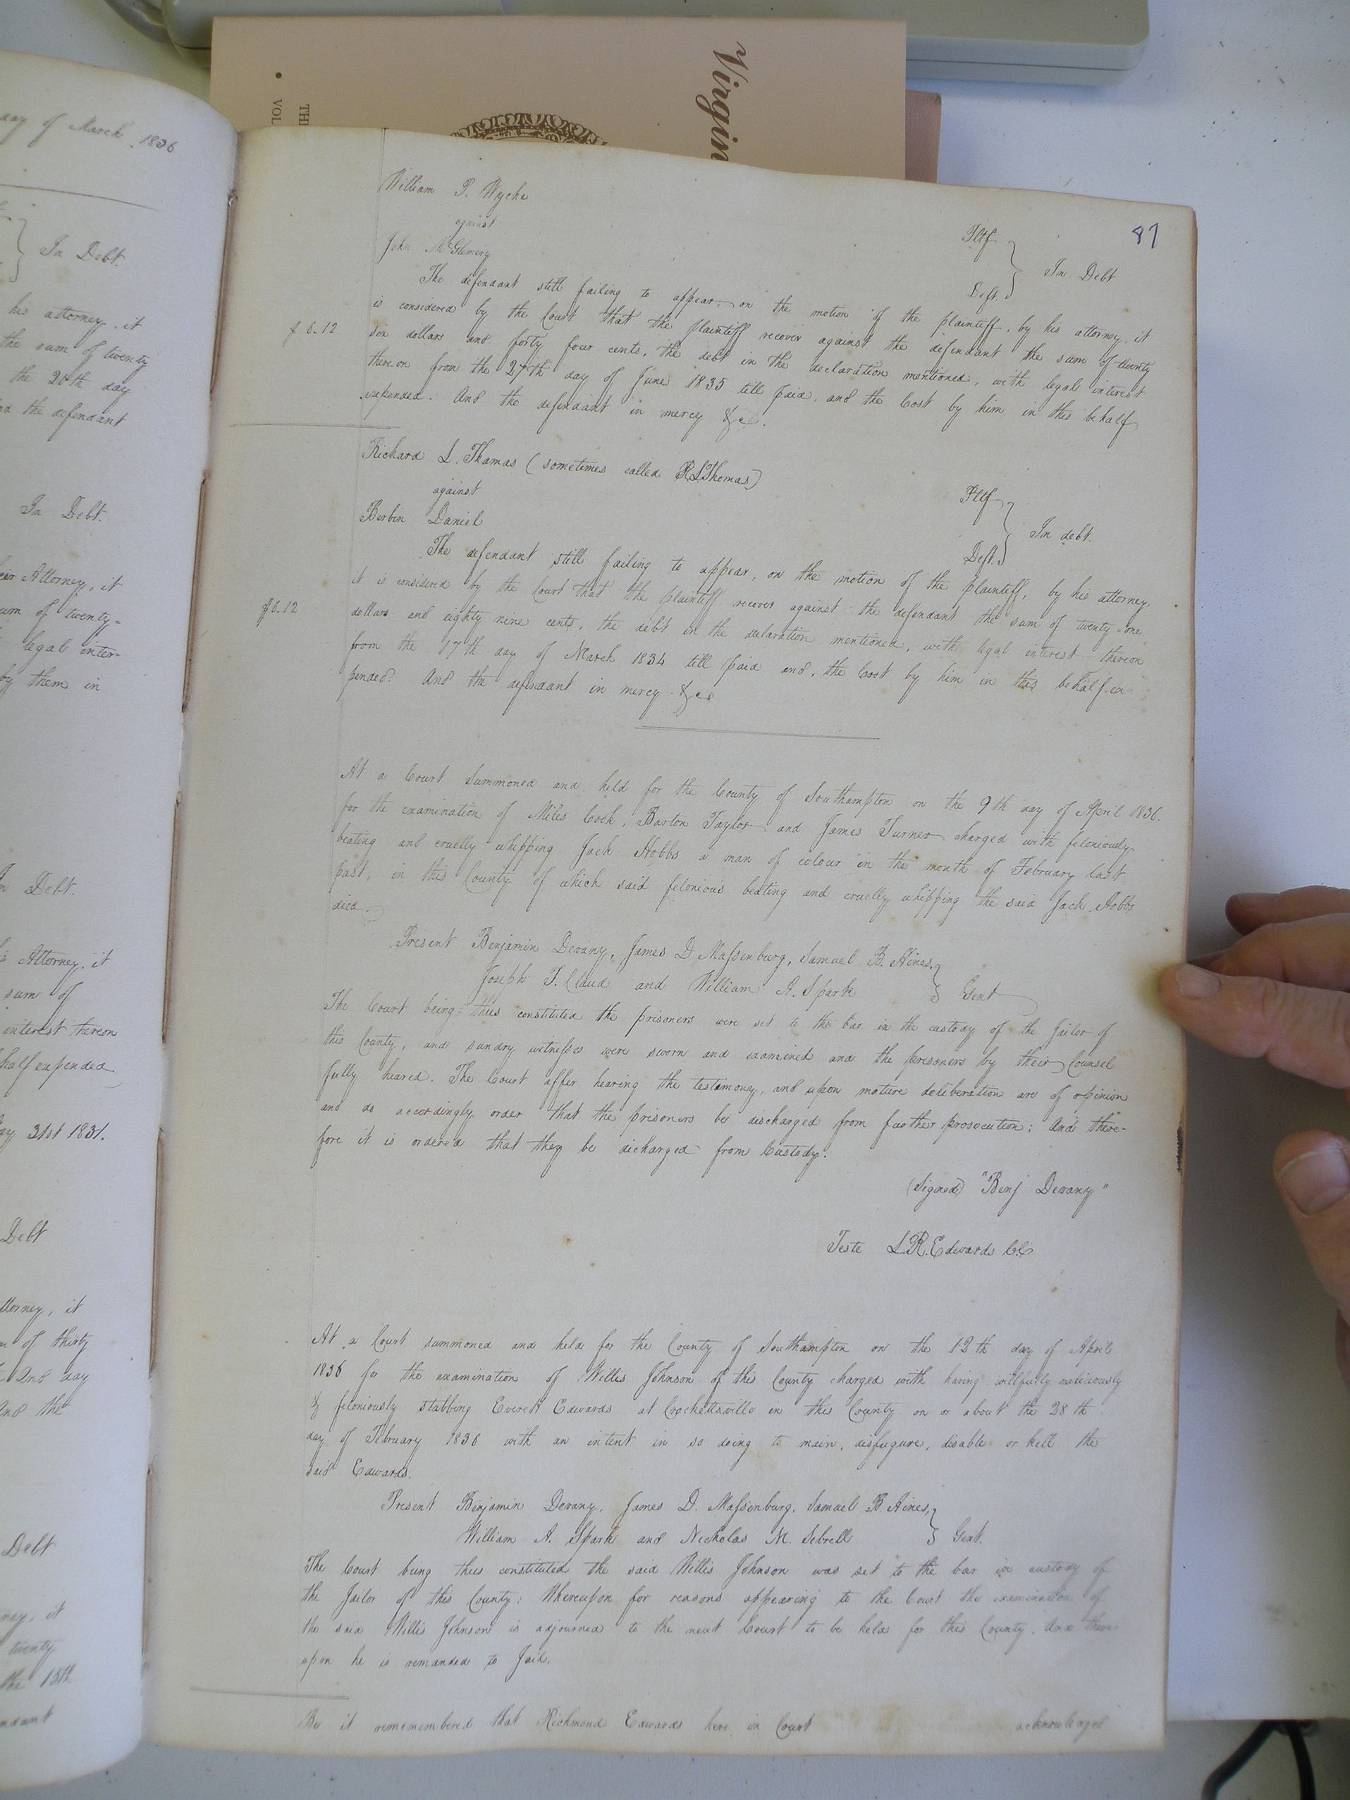 Virgin
TH
VOL
day of March 1836
In Debt.
his attorney, it
the sum of twenty
the 20th day
and the defendant
In Debt.
Attorney, it
sum of twenty-
legal inter-
by them in
In Debt.
Attorney, it
sum of
interest thereon
half expended
31st 1831.
Debt
Attorney, it
of thirty
2nd day
And the
Debt
it
twenty
the 15th
87
William P. Wyche Pltf.
against In Debt
John McGlemery Deft.
The defendant still failing to appear, on the motion of the plaintiff, by his attorney, it
is considered by the Court that the plaintiff recover against the defendant the sum of twenty
six dollars and forty four cents, the debt in the declaration mentioned, with legal interest
thereon from the 27th day of June 1835 till paid, and the Cost by him in this behalf
expended. And the defendant in mercy &c.
6.12
Richard L. Thomas (sometimes called R L Thomas) Pltf
against In debt.
Berbin Daniel Deft.
The defendant still failing to appear, on the motion of the plaintiff, by his attorney,
it is considered by the Court that the plaintiff recover against the defendant the sum of twenty-one
dollars and eighty nine cents, the debt in the declaration mentioned, with legal interest thereon
from the 17th day of March 1834 till paid and, the Cost by him in this behalf ex
pended. And the defendant in mercy &c
6.12
At a Court Summoned and held for the County of Southampton on the 9th day of April 1836.
for the examination of Miles Cook, Barton Taylor and James Turner charged with feloniously
beating and cruelly whipping Jack Hobbs a man of colour in the month of February last
past, in this County of which said felonious beating and cruelly whipping the said Jack Hobbs
died.
Present Benjamin Devany, James D Massenburg, Samuel B. Hines,
Joseph T. Claud and William A. Spark Gent
The Court being thus constituted the prisoners were set to the bar in the custody of the Jailor of
this County, and sundry witnesses were sworn and examined and the prisoners by their Counsel
fully heard. The Court after hearing the testimony, and upon mature deliberation are of opinion
and do accordingly order that the prisoners be discharged from further prosecution; And there-
fore it is ordered that they be discharged from Custody.
(Signed) "Benj Devany"
Teste L. R. Edwards CC
At a Court summoned and held for the County of Southampton on the 12th day of April
1836 for the examination of Willis Johnson of this County charged with having wilfully maliciously
& feloniously stabbing Everett Edwards at Crockettsville in this County on or about the 28th
day of February 1836 with an intent in so doing to maim, disfigure, disable or kill the
said Edwards.
Present Benjamin Devany, James D. Massenburg, Samuel B Hines,
William A. Spark and Nicholas M. Sebrell Gent.
The Court being thus constituted the said Willis Johnson was set to the bar in custody of
the Jailor of this County; Whereupon for reasons appearing to the Court the examination of
the said Willis Johnson is adjourned to the next Court to be held for this County. And there
upon he is remanded to Jail.
Be it rememembered that Richmond Edwards here in Court acknowledged